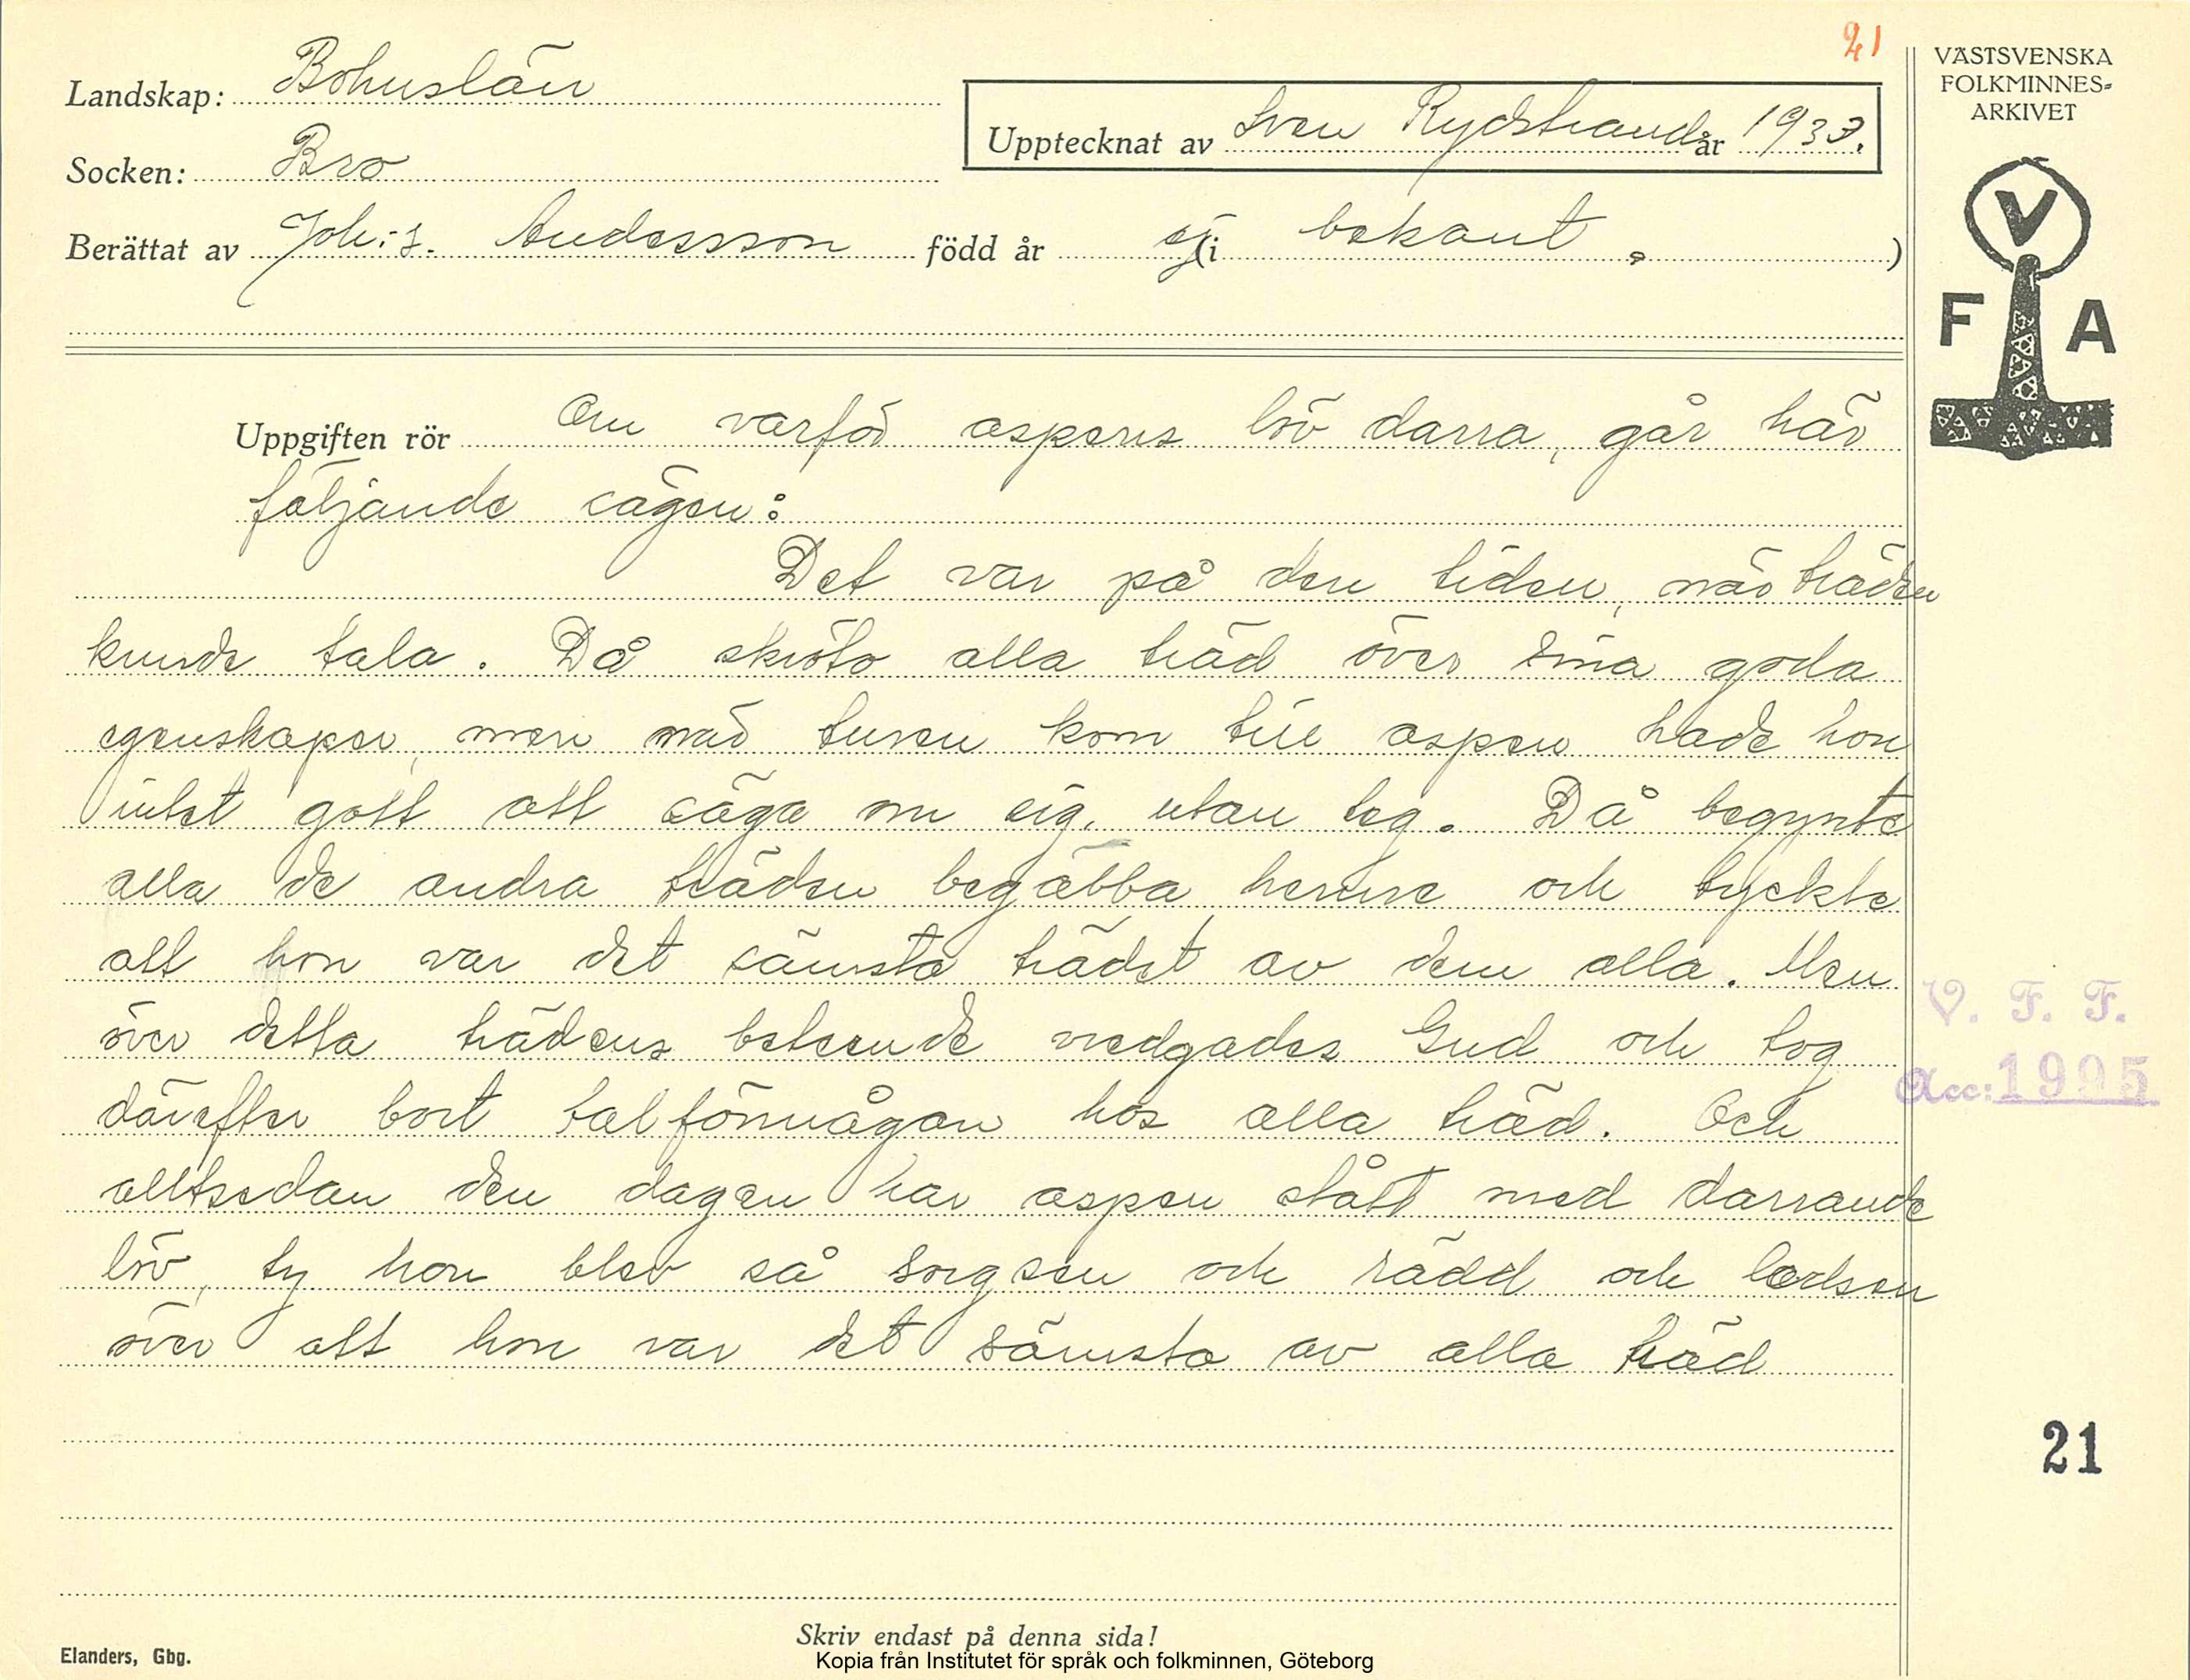 21
VÄSTSVENSKA
FOLKMINNES-
ARKIVET
Landskap: Bohuslän
Upptecknat av Sven Rydstrand år 1933.
Socken: Bro
Berättat av Joh:s. Andersson född år ej (i bekant. )
V
F A
Uppgiften rör Om varför aspens löv darra, går här
följande sägen:
Det var på den tiden, när träden
kunde tala. Då skröto alla träd över sina goda
egenskaper, men när turen kom till aspen hade hon
intet gott att säga om sig, utan teg. Då begynte
alla de andra träden begabba henne och tyckte
att hon var det sämsta trädet av dem alla. Men
över detta trädens beteende vredgades Gud och tog
därefter bort talförmågan hos alla träd. Och
alltsedan den dagen har aspen stått med darrande
löv, ty hon blev så sorgsen och rädd och ledsen
över att hon var det sämsta av alla träd
V. F. F.
Acc: 1995
21
Skriv endast på denna sida!
Elanders, Gbg.
Kopia från Institutet för språk och folkminnen, Göteborg